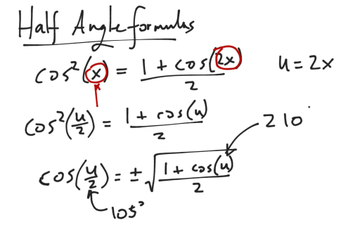 Half Angle formulas
cos²(x) = (1 + cos(2x))/2    u = 2x
cos²(u/2) = (1 + cos(u))/2
210°
cos(u/2) = ± √((1 + cos(u))/2)
105°